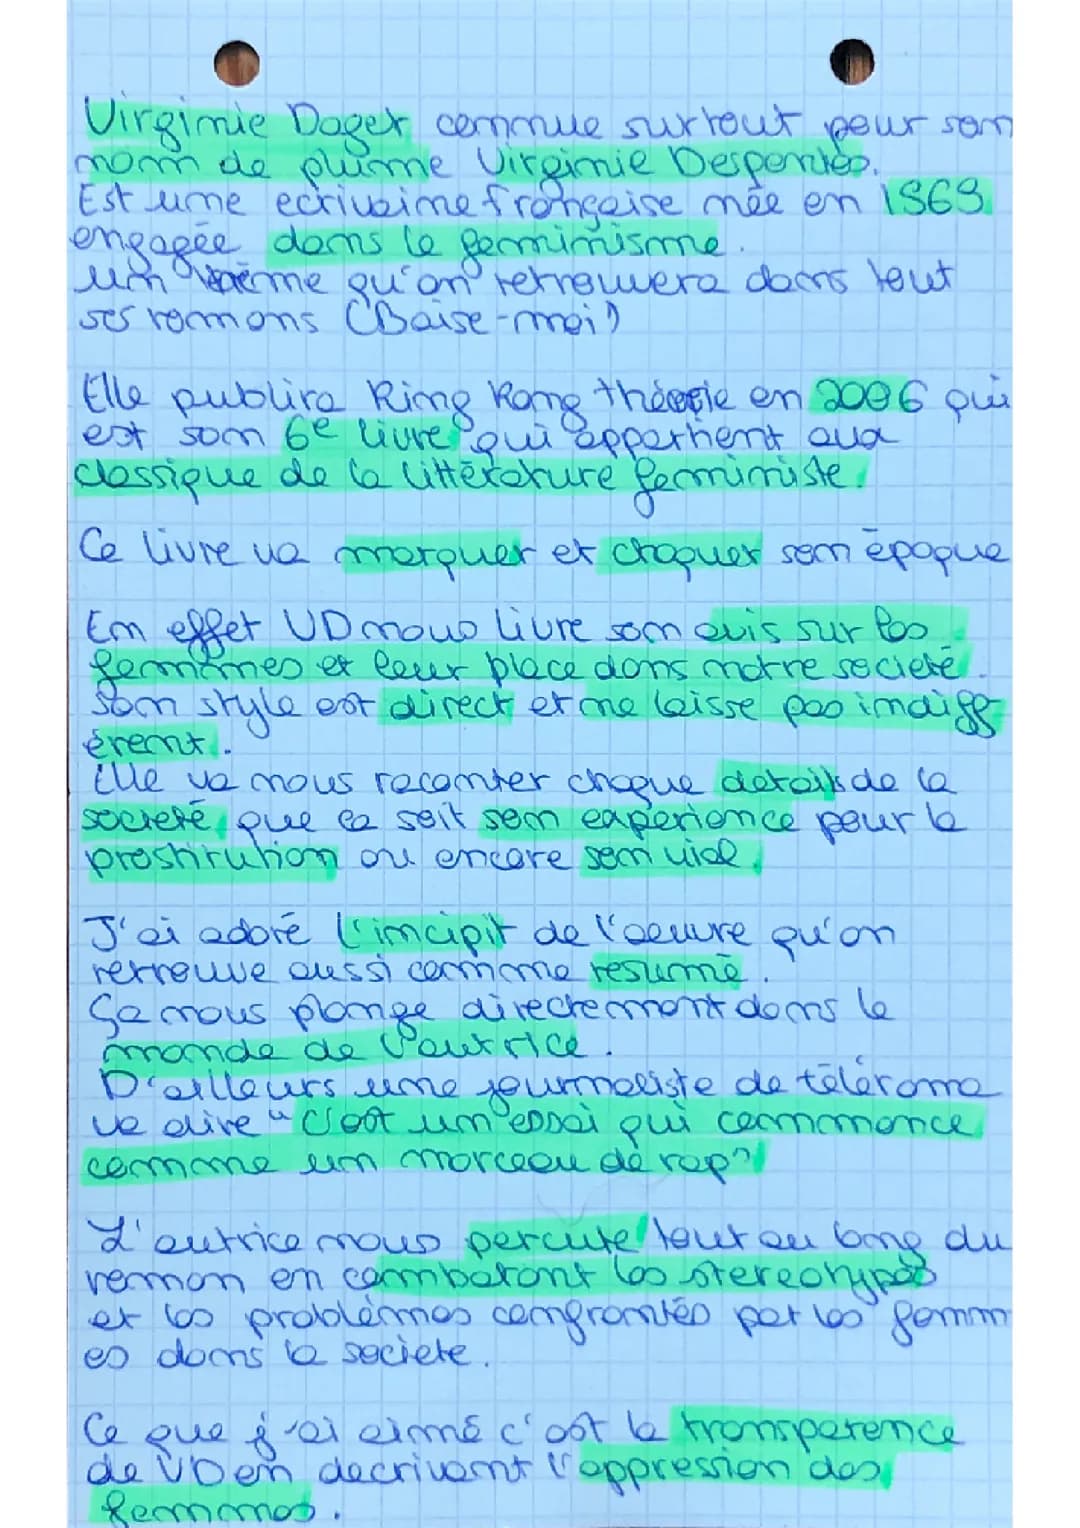 Virginie Daget connue surtout pour son
nom de plume Virginie Despentes.
Est une ecrivaine française née en 1969
engagée dans le feminisme.
um thème qu'on retrouvera dans tout
ses romans (Baise-moi)
Elle publira King Kong théorie en 2006 qui
est son 6e livre qui appartient aux
classique de la littérature feministe.
Ce livre va marquer et choquer son époque
En effet VD nous livre son avis sur les
femmes et leur place dans notre societé.
Son style est direct et ne laisse pas indiff
érent.
Elle va nous raconter chaque details de la
societé, que ca soit son experience pour la
prostitution ou encore son viol.
J'ai adoré l'incipit de l'oeuvre qu'on
retrouve aussi comme resumé.
Ça nous plonge directement dans le
monde de l'autrice.
D'ailleurs une journaliste de télérama
va dire "C'est un essai qui commence
comme un morceau de rap"
L'autrice nous percute tout au long du
roman en combatant les stereotypes
et les problèmes confrontés par les femm
es dans la societe.
Ce que j'ai aimé c'est la transparence
de VD en decrivant l'oppression des
femmes.